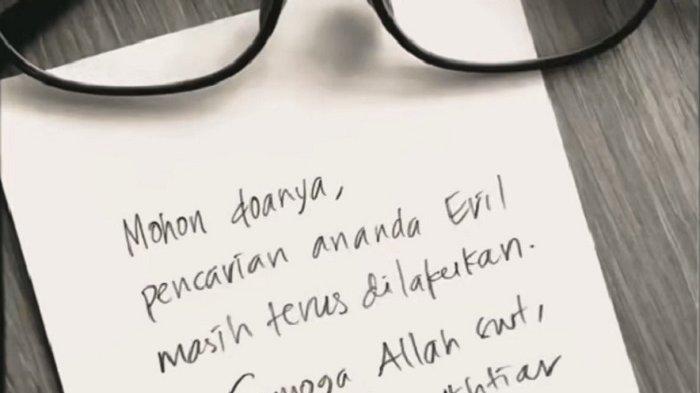 Mohon doanya,
pencarian ananda Evil
masih terus dilakukan.
Semoga Allah swt,
ikhtiar